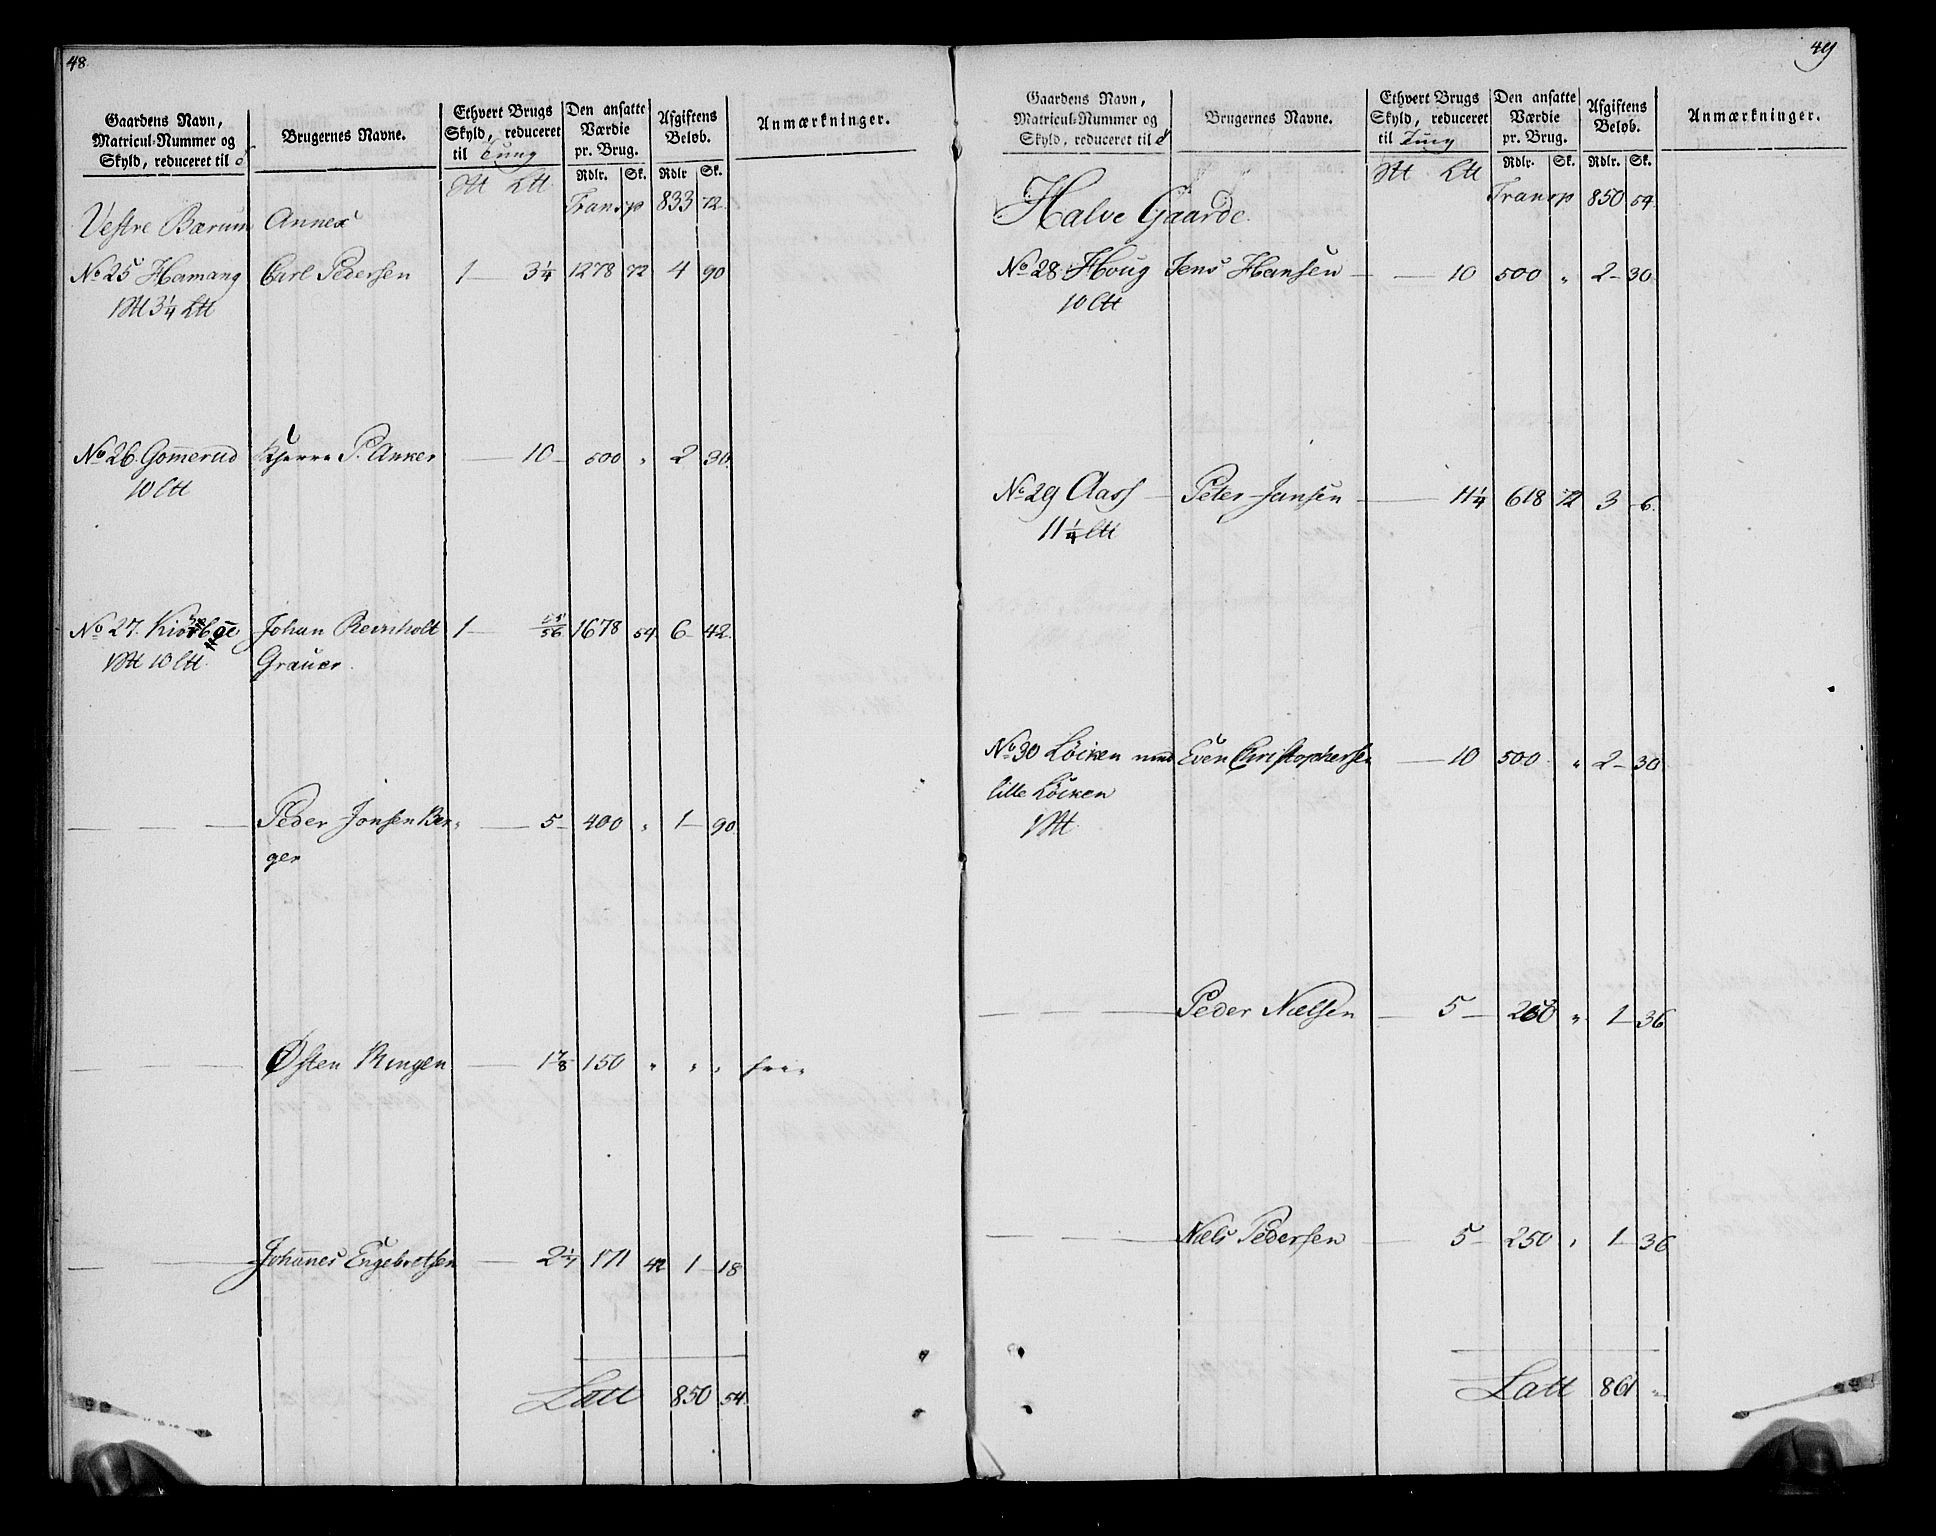 48.
Gaardens Navn, Matricul-Nummer og Skyld, reduceret til | Brugernes Navne. | Ethvert Brugs Skyld, reduceret til Tung | Den ansatte Værdie pr. Brug. | Afgiftens Beløb. | Anmærkninger.
Rdlr. Sk. Rdlr Sk.
Transp 833 72.
Vestre Bærum Annex
No 25 Hamang Carl Pedersen 1 — 3¼ 1278 72 4 90
3¼
No 26. Gomerud P. Anker — 10 — 500 „ 2 30.
10
No 27. Johan Reinholt 1 — 1678 54 6 — 42.
10 Grauer.
— — — Peder Jonsen Ber- — 5 — 400 „ 1 — 90.
ger
— — — Østen Ringen — 1⅞ 150 „ „ „ frie
— — — Johannes Engebretsen — 171 42 1 — 18
Latt 850 54.
49
Gaardens Navn, Matricul-Nummer og Skyld, reduceret til | Brugernes Navne. | Ethvert Brugs Skyld, reduceret til Tung | Den ansatte Værdie pr. Brug. | Afgiftens Beløb. | Anmærkninger.
Rdlr. Sk. Rdlr. Sk.
Transp 850 54.
Halve Gaarde.
No 28. Houg Jens Hansen — — 10 500 „ 2 — 30
10
No 29 Aass — Peter Jansen — 11¼ 618 72 3 — 6.
11¼
No 30 Løcken med Even Christophersen — 10 500 „ 2 — 30
lille Løcken
— — — Peder Nielsen — 5 — 250 „ 1 — 36
— — — Niels Pedersen — 5 — 250 „ 1 — 36
Latt 861 „